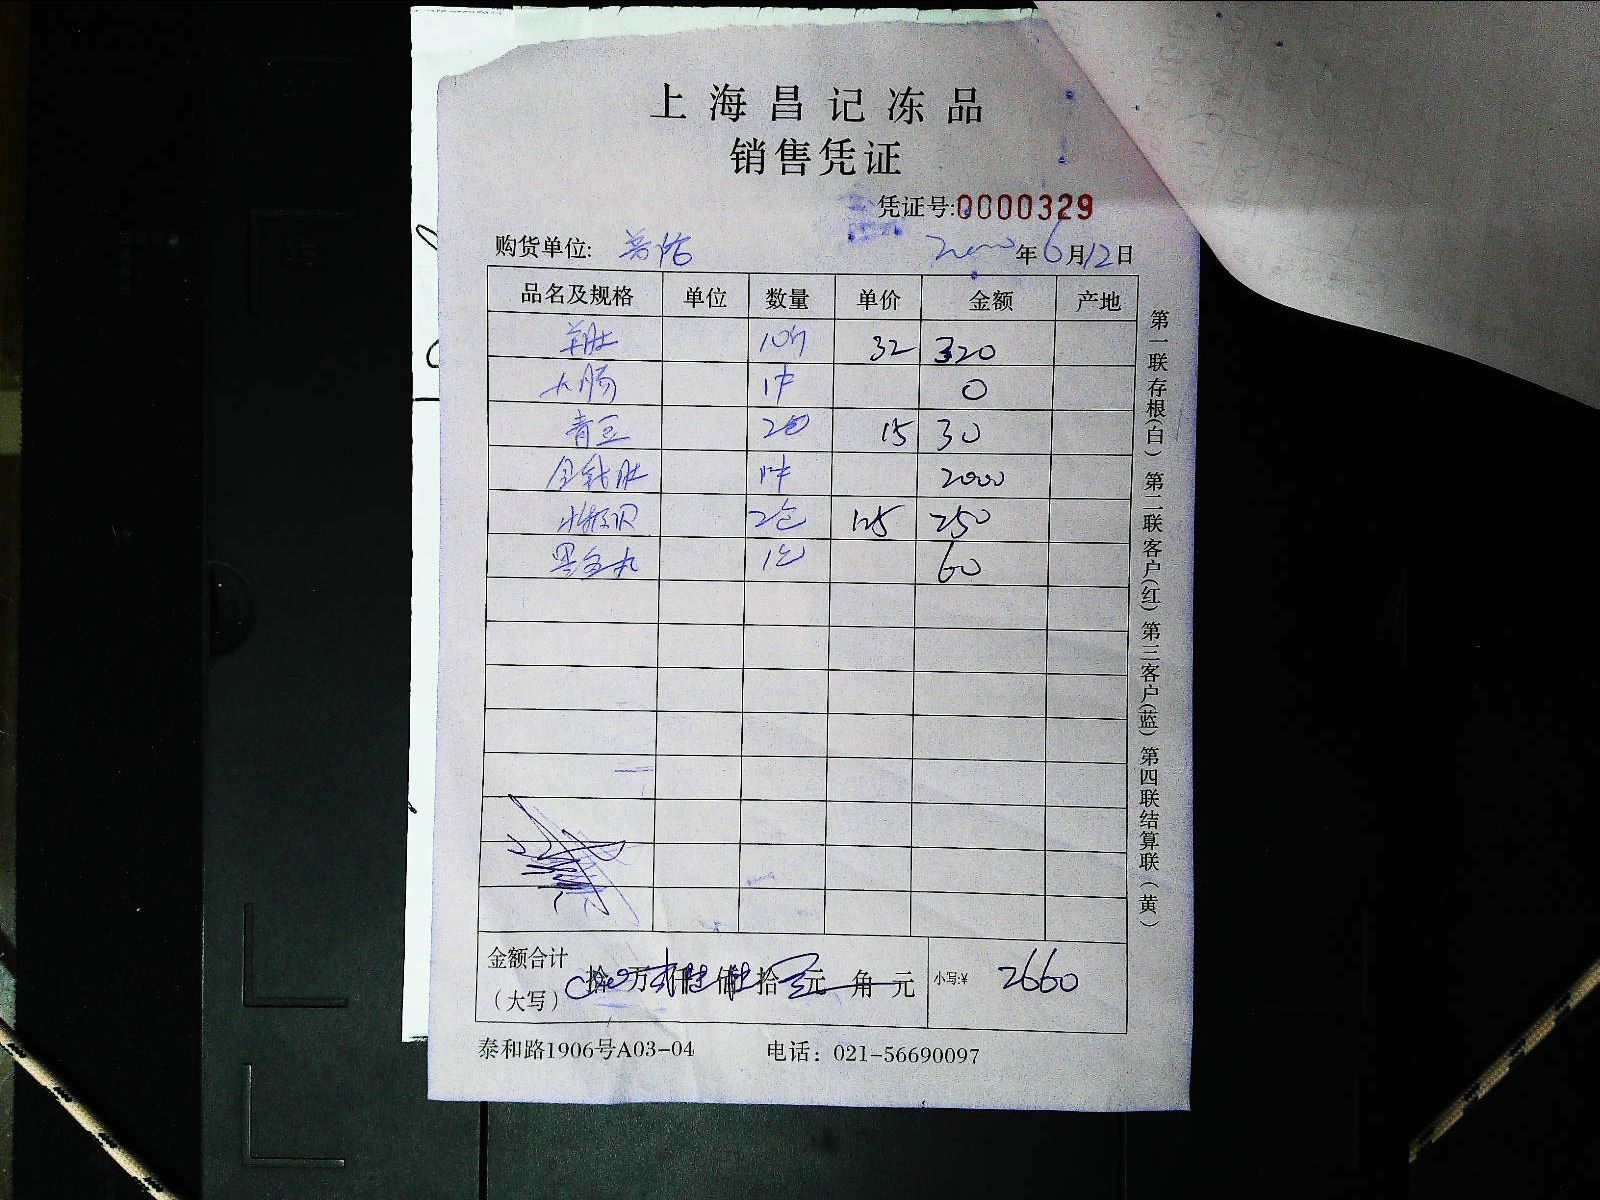 上海昌记冻品
销售凭证
凭证号:0000329
购货单位:
年6月12日
品名及规格 单位 数量 单价 金额 产地
羊肚 10斤 32 320
大肠 1件 0
青豆 2包 15 30
金钱肚 1件 2000
2包 125 250
1包 60
金额合计
(大写) 拾 万 仟 佰 拾 元 角 元 小写:¥ 2660
泰和路1906号A03-04 电话：021-56690097
第一联存根(白) 第二联客户(红) 第三客户(蓝) 第四联结算联(黄)